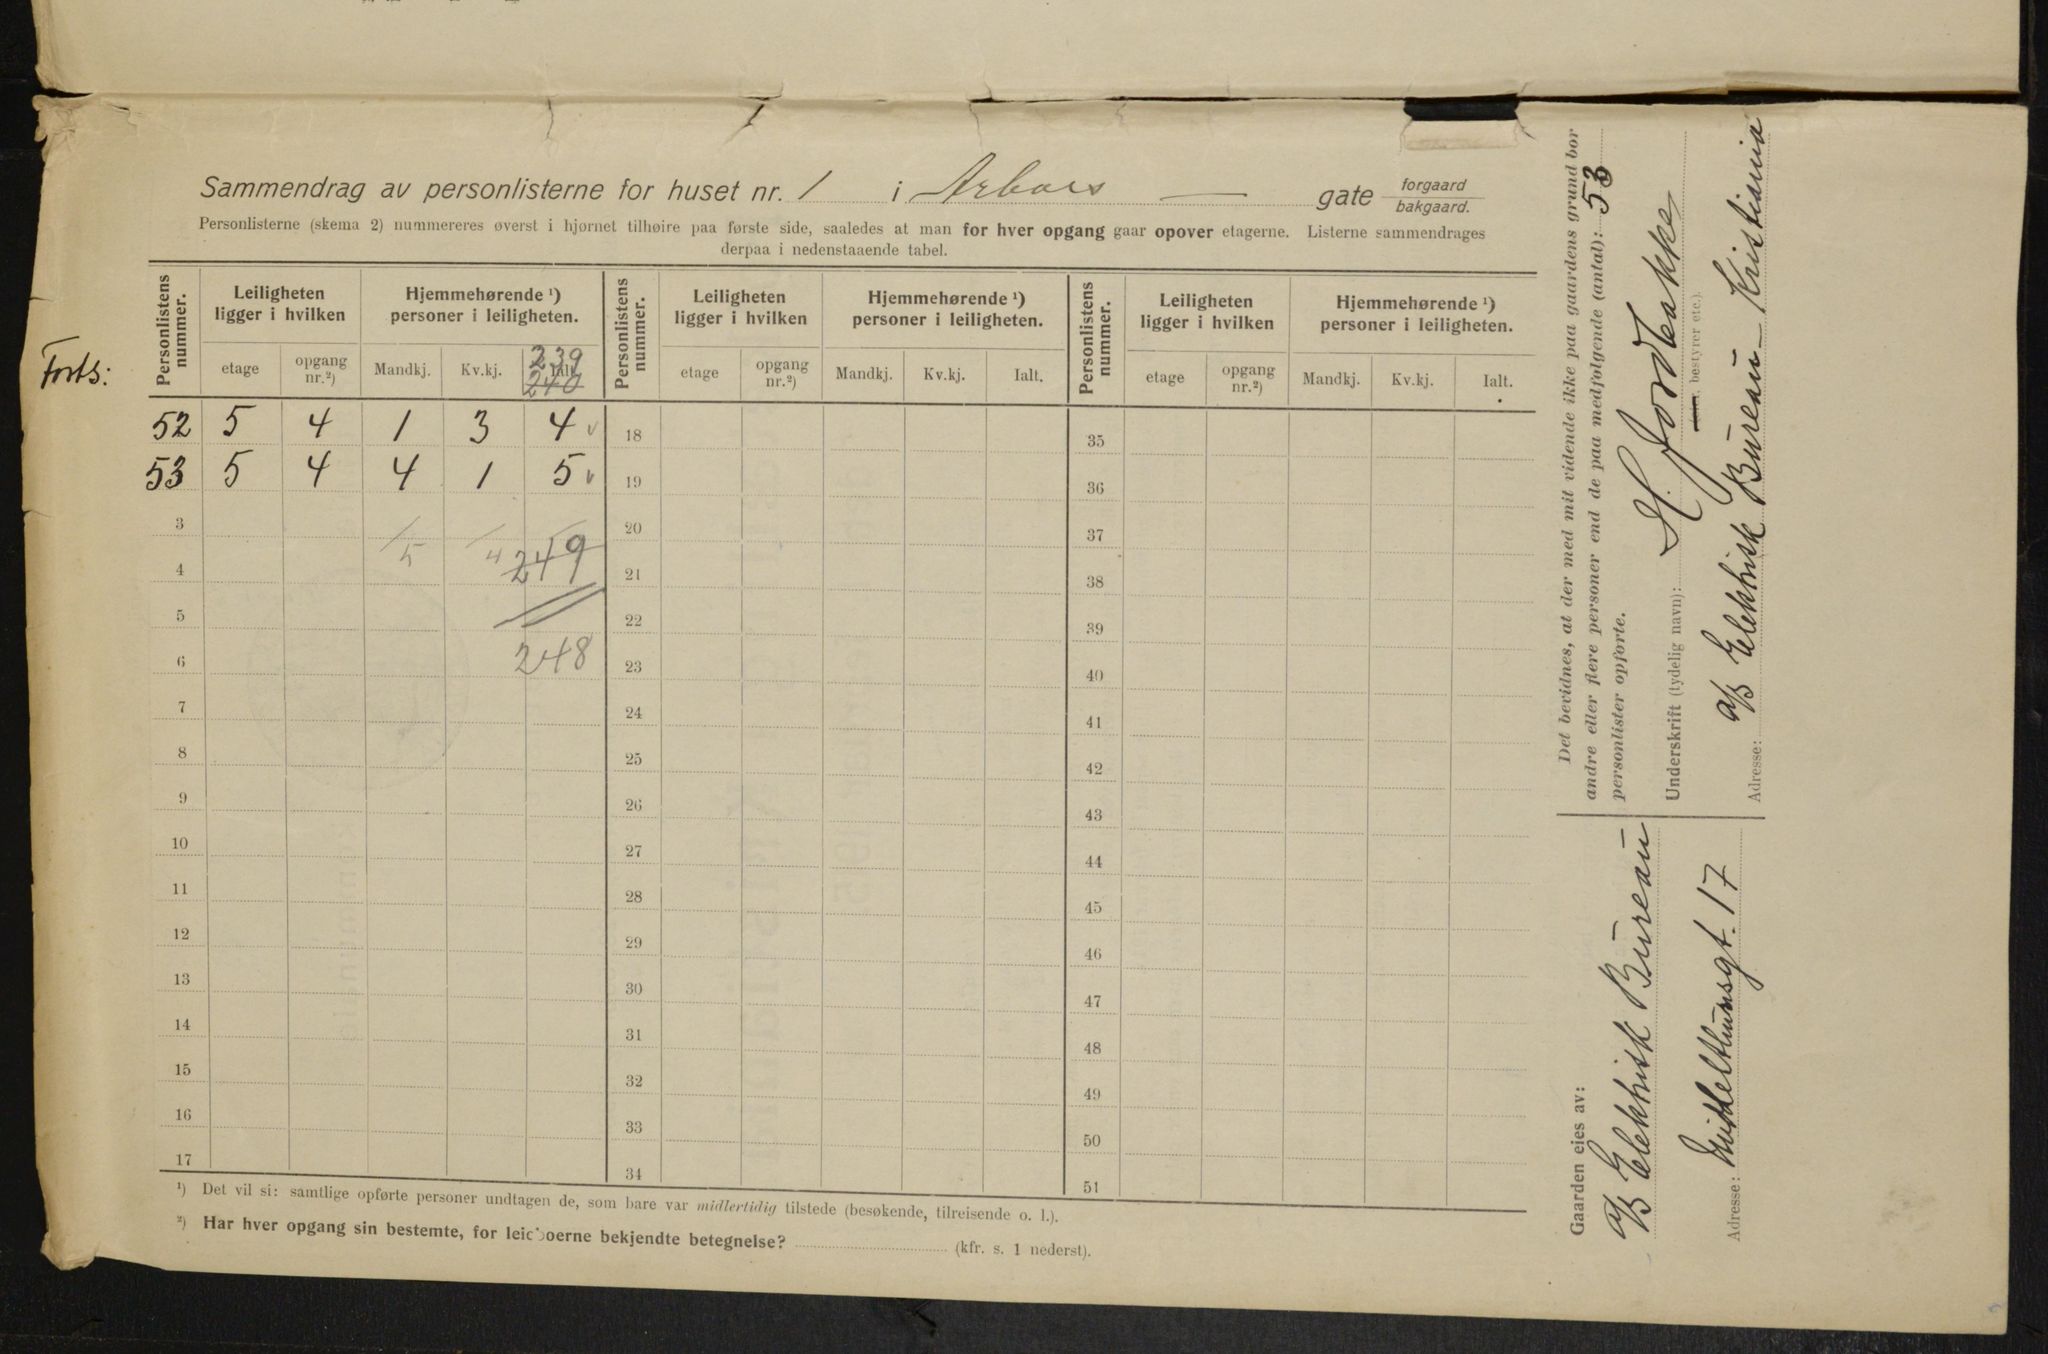 Sammendrag av personlisterne for huset nr. 1 i Arbos — gate forgaard bakgaard.
Personlisterne (skema 2) nummereres øverst i hjørnet tilhøire paa første side, saaledes at man for hver opgang gaar opover etagerne. Listerne sammendrages
derpaa i nedenstaaende tabel.
Forts:
Personlistens nummer. Leiligheten ligger i hvilken Hjemmehørende ¹) personer i leiligheten. Personlistens nummer. Leiligheten ligger i hvilken Hjemmehørende ¹) personer i leiligheten. Personlistens nummer. Leiligheten ligger i hvilken Hjemmehørende ¹) personer i leiligheten.
etage opgang nr.²) Mandkj. Kv.kj. Ialt. 239 240 etage opgang nr.²) Mandkj. Kv.kj. Ialt. etage opgang nr.²) Mandkj. Kv.kj. Ialt.
52 5 4 1 3 4 18 35
53 5 4 4 1 5 19 36
3 20 37
4 5 4 249 21 38
5 22 39
6 248 23 40
7 24 41
8 25 42
9 26 43
10 27 44
11 28 45
12 29 46
13 30 47
14 31 48
15 32 49
16 33 50
17 34 51
¹) Det vil si: samtlige opførte personer undtagen de, som bare var midlertidig tilstede (besøkende, tilreisende o. l.).
²) Har hver opgang sin bestemte, for leieboerne bekjendte betegnelse? (kfr. s. 1 nederst).
Det bevidnes, at der med mit vidende ikke paa gaardens grund bor
andre eller flere personer end de paa medfølgende (antal): 53
personlister opførte.
Underskrift (tydelig navn): H. Jordbakke
bestyrer etc.).
Adresse: a/s Elektrisk Bureau – Kristiania
Gaarden eies av:
a/s Elektrisk Bureau
Adresse: Middelthunsgt. 17